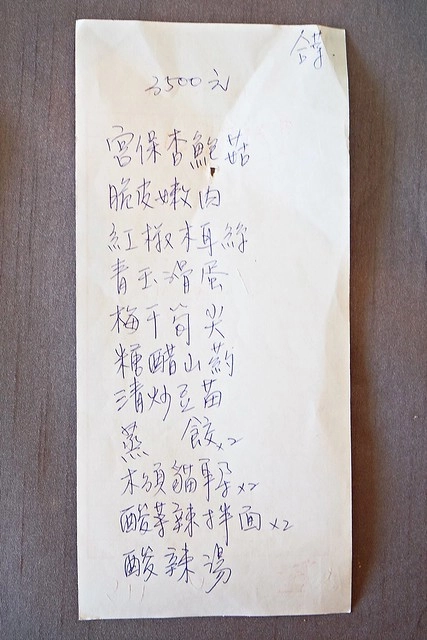 3500元
宮保杏鮑菇
脆皮嫩肉
紅椒木耳絲
青玉滑蛋
梅干筍尖
糖醋山葯
清炒豆苗
蒸 餃x2
木須貓耳朵x2
酸菜辣拌面x2
酸辣湯